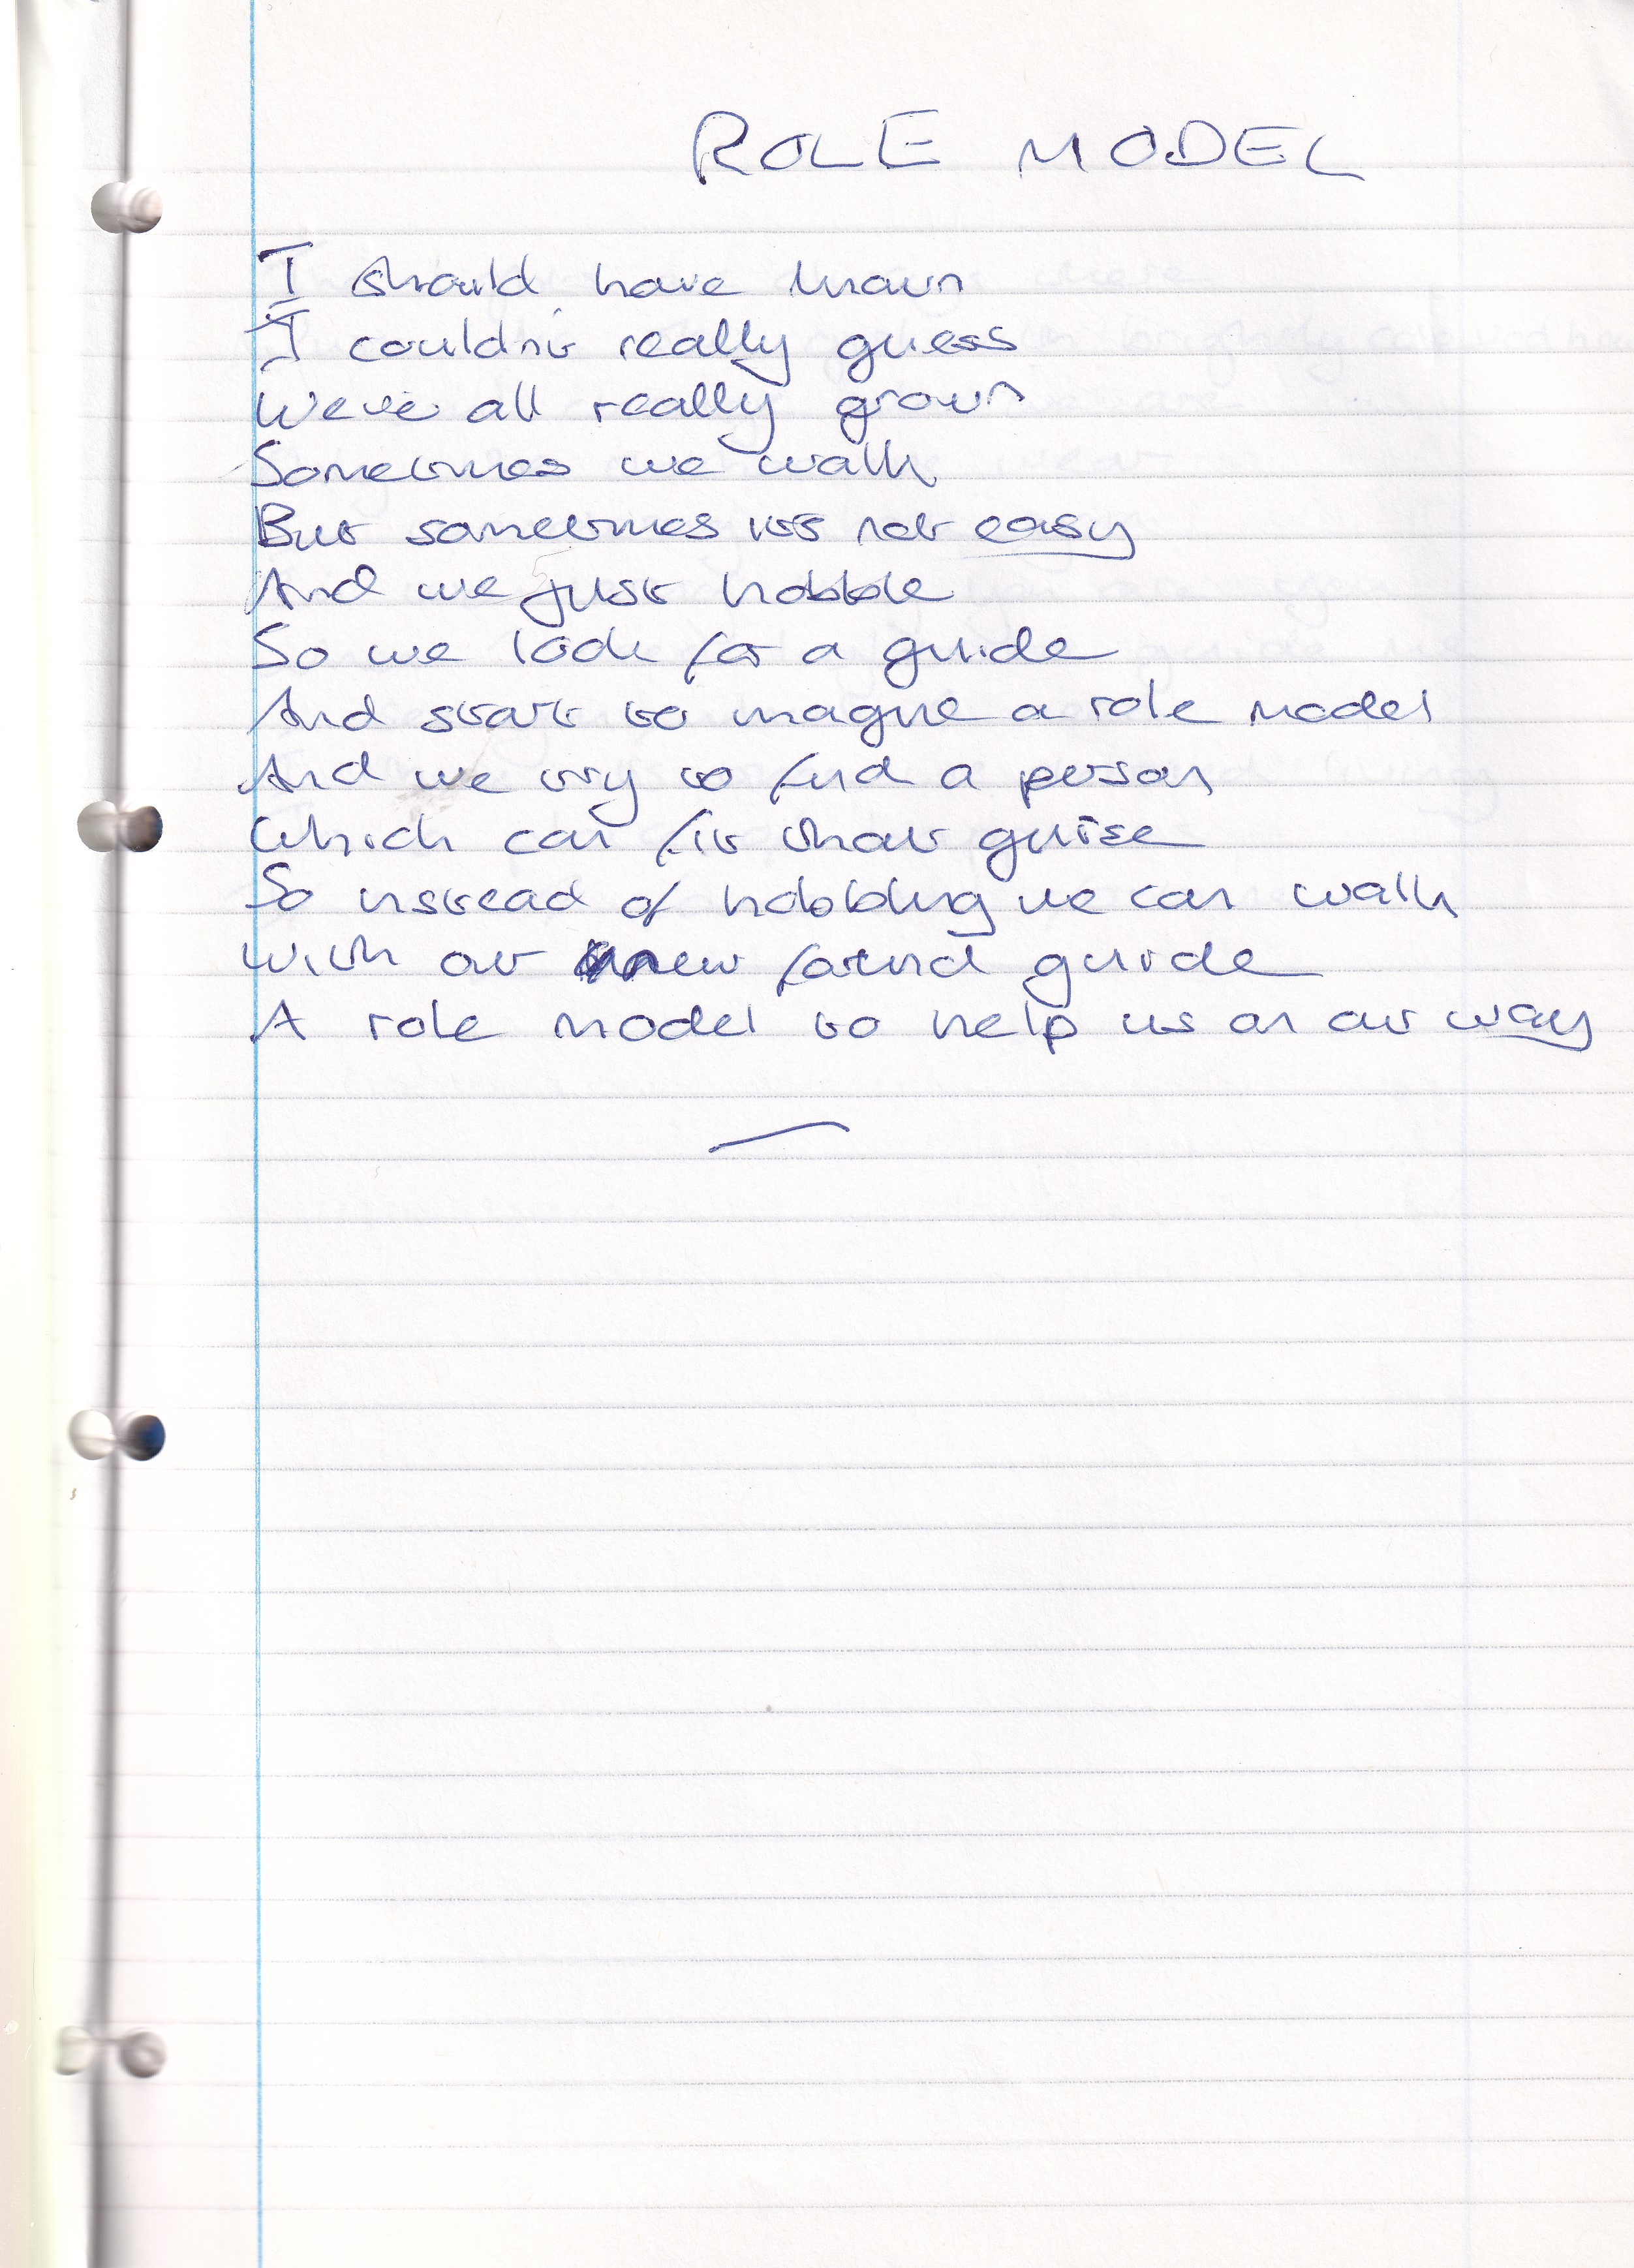 ROLE MODEL
I should have known
I couldn't really guess
We've all really grown
Sometimes we walk
But sometimes its not easy
And we just hobble
So we look for a guide
And start to imagine a role model
And we try to find a person
Which can fit that guise
So instead of hobbling we can walk
With our new found guide
A role model to help us on our way